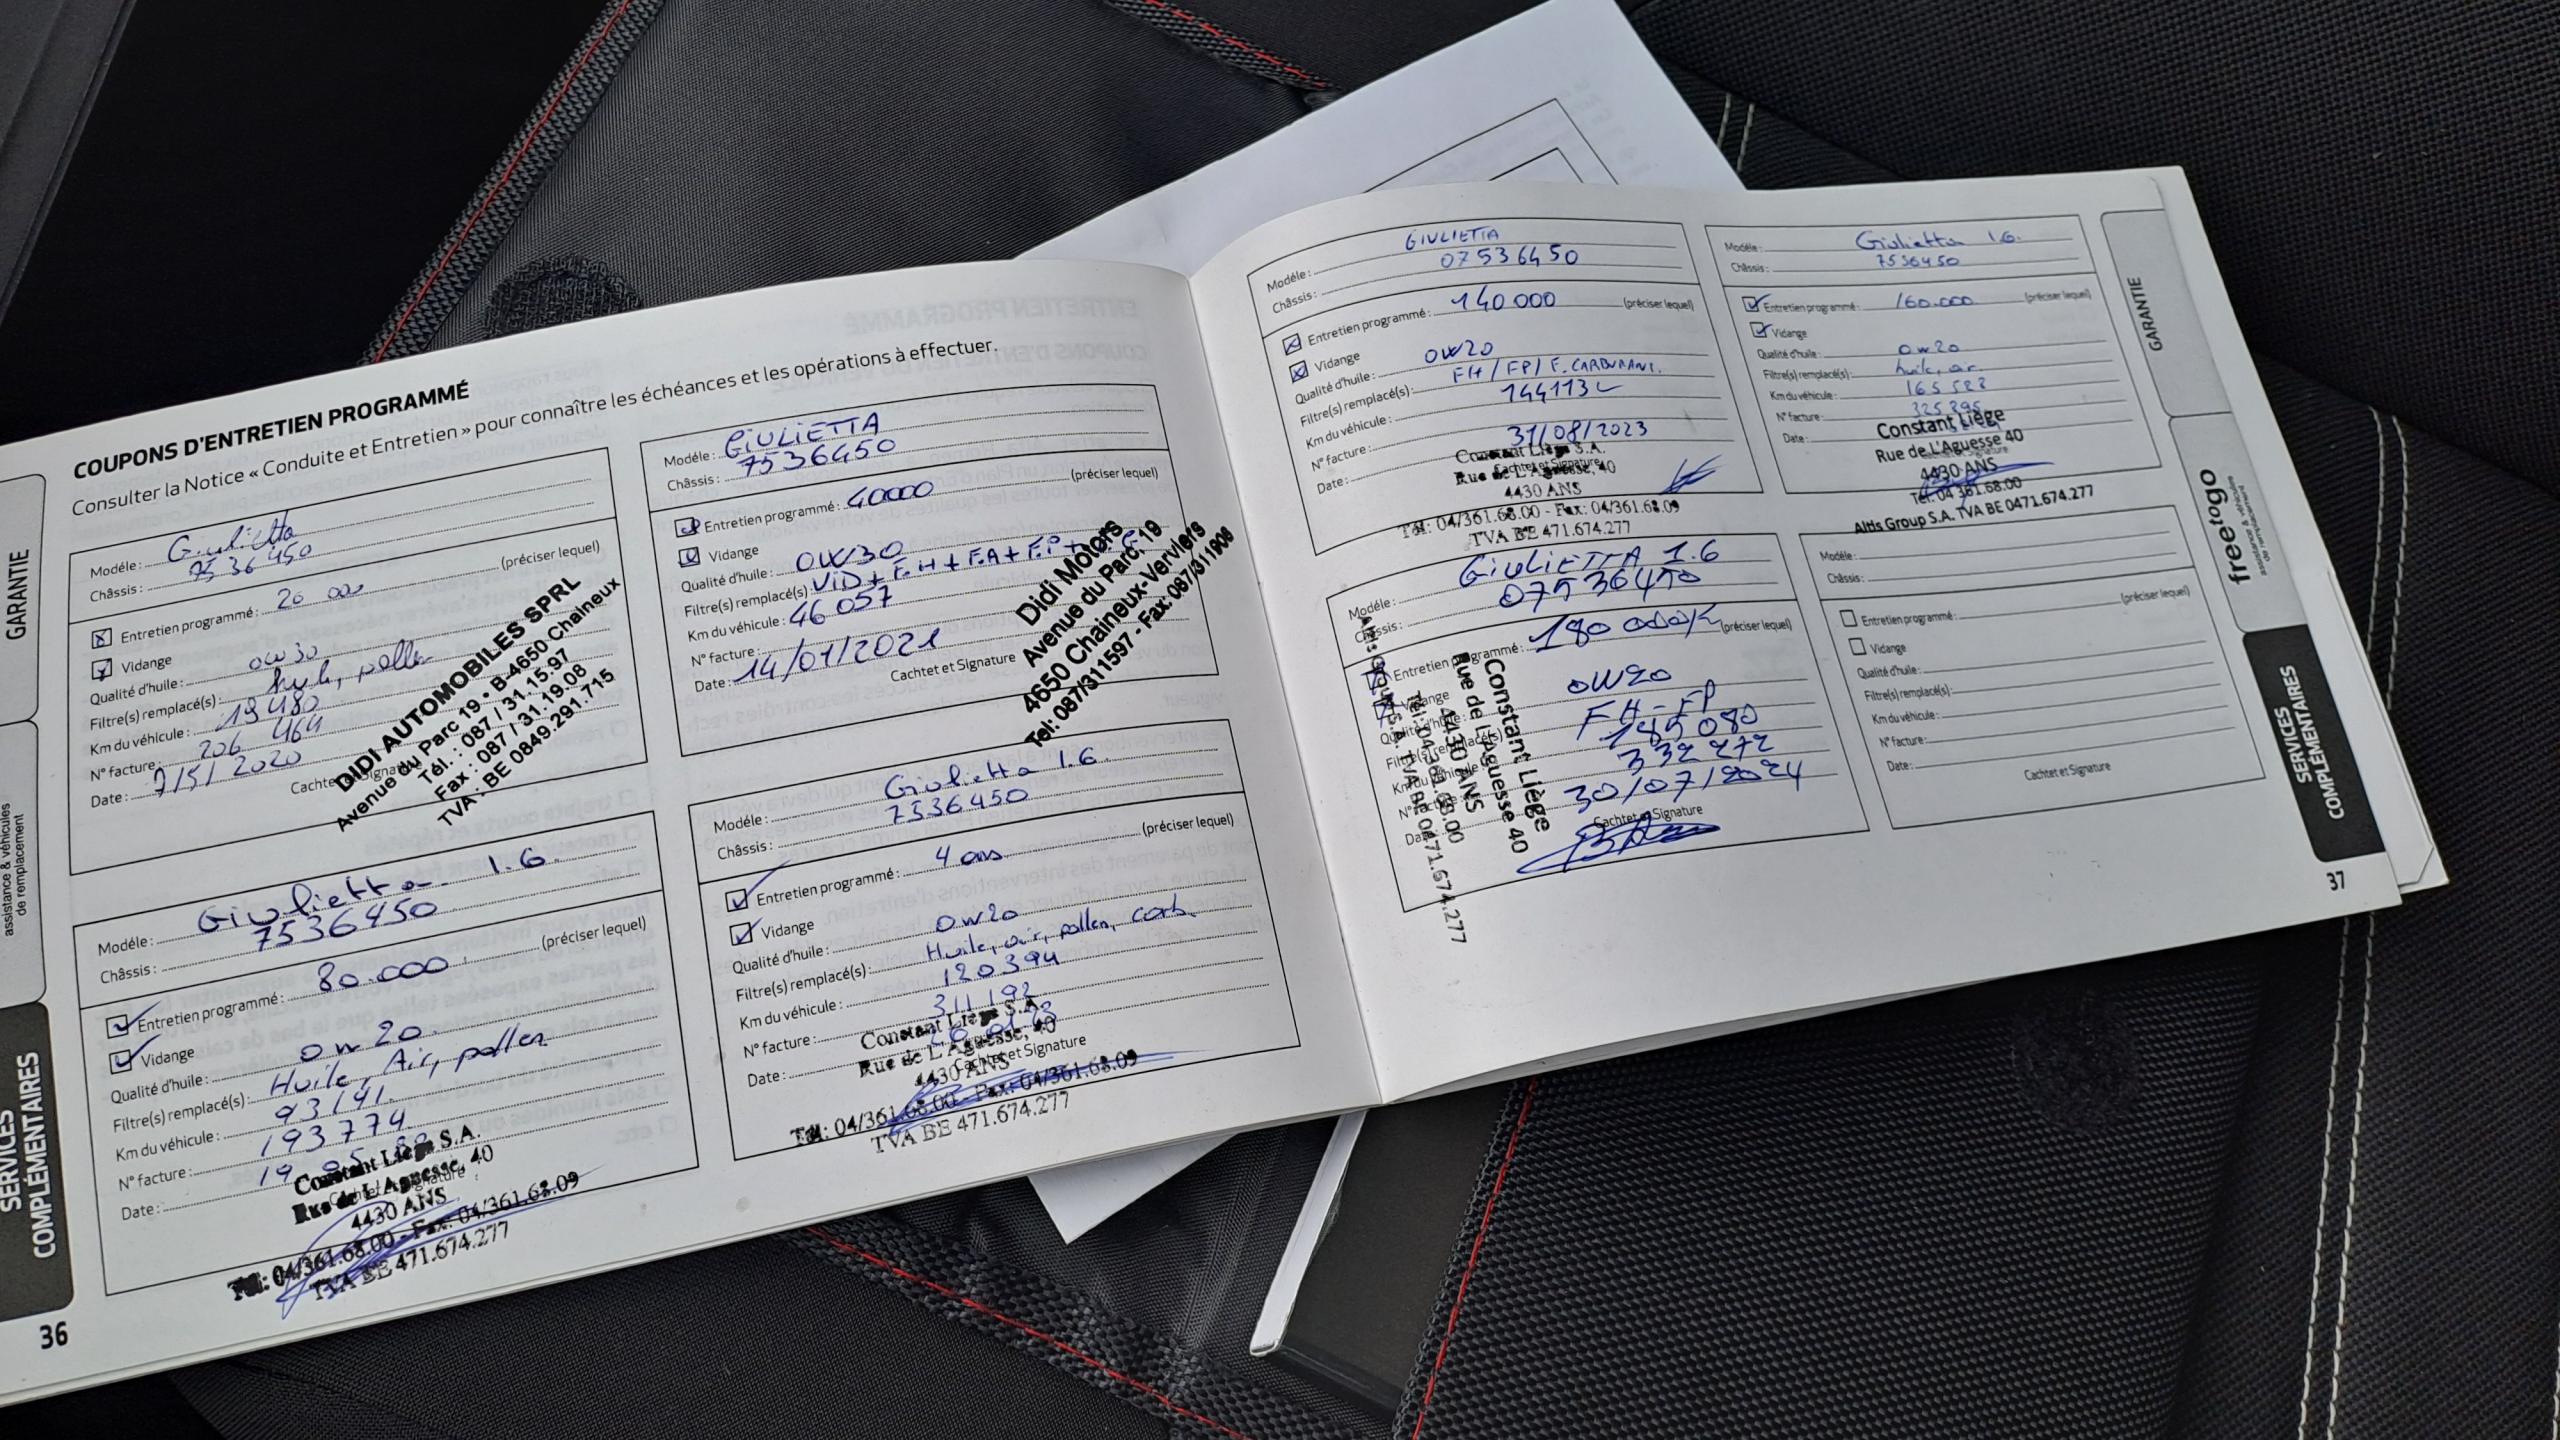 COUPONS D'ENTRETIEN PROGRAMMÉ
Consulter la Notice « Conduite et Entretien » pour connaître les échéances et les opérations à effectuer.
Modéle : Giulietta
Châssis : 7536450
Entretien programmé : 20 000 (préciser lequel)
Vidange
Qualité d'huile : 0W30
Filtre(s) remplacé(s) : huile, pollen
Km du véhicule : 19480
N° facture : 206 464
Date : 7/5/2020
Cachet et Signature
DIDI AUTOMOBILES SPRL
Avenue du Parc 19 • B-4650 Chaineux
Tél. : 087 / 31.15.97
Fax : 087 / 31.19.08
TVA : BE 0849.291.715
Modéle : GIULIETTA
Châssis : 7536450
Entretien programmé : 40000 (préciser lequel)
Vidange
Qualité d'huile : 0W30
Filtre(s) remplacé(s) : VID + F.H + F.A + F.P +
Km du véhicule : 46057
N° facture :
Date : 14/01/2021
Cachtet et Signature
Didi Motors
Avenue du Parc, 19
4650 Chaineux-Verviers
Tel: 087/311597 - Fax: 087/311908
Modéle : Giulietta 1.6.
Châssis : 7536450
Entretien programmé : 80.000 (préciser lequel)
Vidange
Qualité d'huile : 0w20.
Filtre(s) remplacé(s) : Huile, Air, pollen
Km du véhicule : 93141.
N° facture : 193774.
Date : 19
Cachtet et Signature
Constant Liège S.A.
Rue de L'Aguesse, 40
4430 ANS
Tél: 04/361.68.00 - Fax: 04/361.68.09
TVA BE 471.674.277
Modéle : Giulietta 1.6.
Châssis : 7536450
Entretien programmé : 4 ans (préciser lequel)
Vidange
Qualité d'huile : 0w20
Filtre(s) remplacé(s) : Huile, air, pollen, carb.
Km du véhicule : 120394
N° facture : 311192
Date :
Cachtet et Signature
Constant Liège S.A.
Rue de L'Aguesse, 40
4430 ANS
Tél: 04/361.68.00 - Fax: 04/361.68.09
TVA BE 471.674.277
GARANTIE
assistance & véhicules
de remplacement
SERVICES
COMPLÉMENTAIRES
36
Modéle : GIULIETTA
Châssis : 07536450
Entretien programmé : 140 000 (préciser lequel)
Vidange
Qualité d'huile : 0W20
Filtre(s) remplacé(s) : FH / FP / F. CARBURANT.
Km du véhicule : 144113
N° facture :
Date : 31/08/2023
Cachtet et Signature
Constant Liège S.A.
Rue de L'Aguesse, 40
4430 ANS
Tél: 04/361.68.00 - Fax: 04/361.68.09
TVA BE 471.674.277
Modéle : Giulietta 1.6.
Châssis : 7536450
Entretien programmé : 160.000 (préciser lequel)
Vidange
Qualité d'huile : 0w20
Filtre(s) remplacé(s) : huile, air.
Km du véhicule :
N° facture : 325295
Date :
Constant Liège
Rue de L'Aguesse 40
4430 ANS
Tél. 04 361.68.00
Altis Group S.A. TVA BE 0471.674.277
Modéle : GIULIETTA 1.6
Châssis : 07536450
Entretien programmé : 180 000 (préciser lequel)
Vidange
Qualité d'huile : 0W20
Filtre(s) remplacé(s) : FH - FP
Km du véhicule : 185080
N° facture : 332272
Date : 30/07/2024
Cachtet et Signature
Constant Liège
Rue de L'Aguesse 40
4430 ANS
Tél. 04 361.68.00
Altis Group S.A. TVA BE 0471.674.277
Modéle :
Châssis :
Entretien programmé : (préciser lequel)
Vidange
Qualité d'huile :
Filtre(s) remplacé(s) :
Km du véhicule :
N° facture :
Date :
Cachtet et Signature
GARANTIE
freetogo
assistance & véhicules
de remplacement
SERVICES
COMPLÉMENTAIRES
37